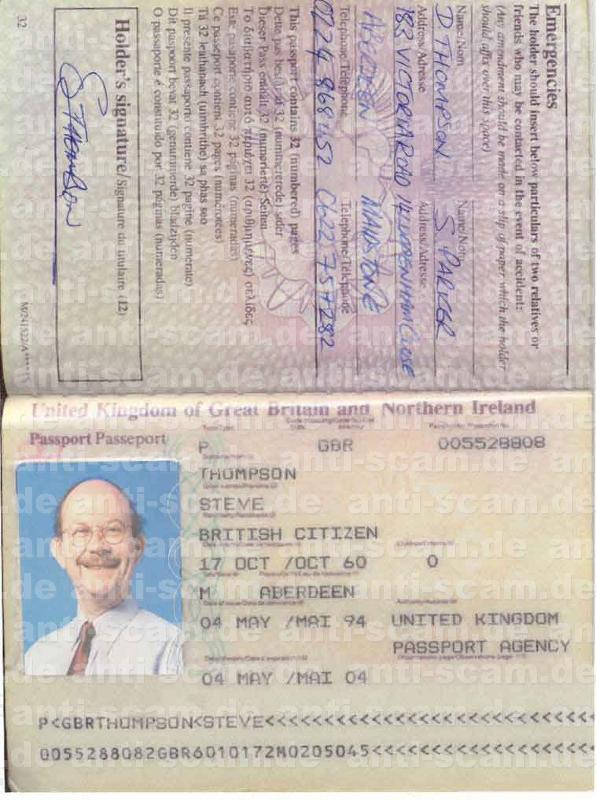 Emergencies
The holder should insert below particulars of two relatives or
friends who may be contacted in the event of accident:
(Any amendment should be made on a slip of paper, which the holder
should affix over this space)
Name/Nom
D THOMPSON
Address/Adresse
183 VICTORIA ROAD
ABERDEEN
Telephone/Téléphone
01224 868452
Name/Nom
S PARKER
Address/Adresse
MAIDSTONE
Telephone/Téléphone
01622 757282
This passport contains 32 (numbered) pages
Dette pas består af 32 (nummererede) sider
Dieser Pass enthält 32 (numerierte) Seiten
Το διαβατήριο αυτό περιέχει 32 (αριθμημένες) σελίδες
Este pasaporte contiene 32 páginas (numeradas)
Ce passeport contient 32 pages (numérotées)
Tá 32 leathanach (uimhrithe) sa phas seo
Il presente passaporto contiene 32 pagine (numerate)
Dit paspoort bevat 32 (genummerde) bladzijden
O passaporte é constituído por 32 páginas (numeradas)
Holder's signature/Signature du titulaire (12)
S Thompson
32
United Kingdom of Great Britain and Northern Ireland
Passport Passeport
P GBR 005528808
THOMPSON
STEVE
BRITISH CITIZEN
17 OCT /OCT 60 0
M ABERDEEN
04 MAY /MAI 94 UNITED KINGDOM
PASSPORT AGENCY
04 MAY /MAI 04
P<GBRTHOMPSON<STEVE<<<<<<<<<<<<<<<<<<<<<<<
0055288082GBR6010172M0205045<<<<<<<<<<<<<<
anti-scam.de